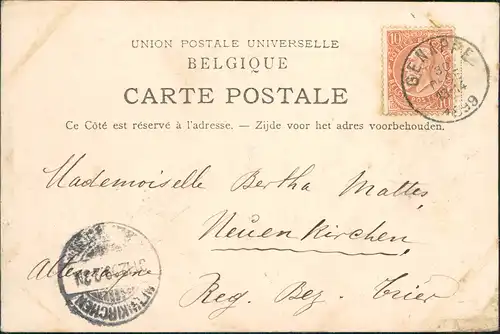 UNION POSTALE UNIVERSELLE
BELGIQUE
CARTE POSTALE
Ce Côté est réservé à l'adresse. — Zijde voor het adres voorbehouden.
10
GENAPPE
1899
Mademoiselle Bertha Mattes
Neuenkirchen
Allemagne
Reg. Bez. Trier